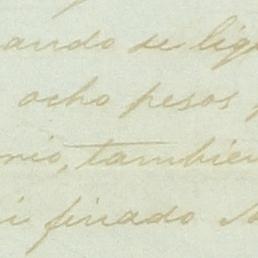 ando se lig
ocho pesos
rio, tambien
i finado